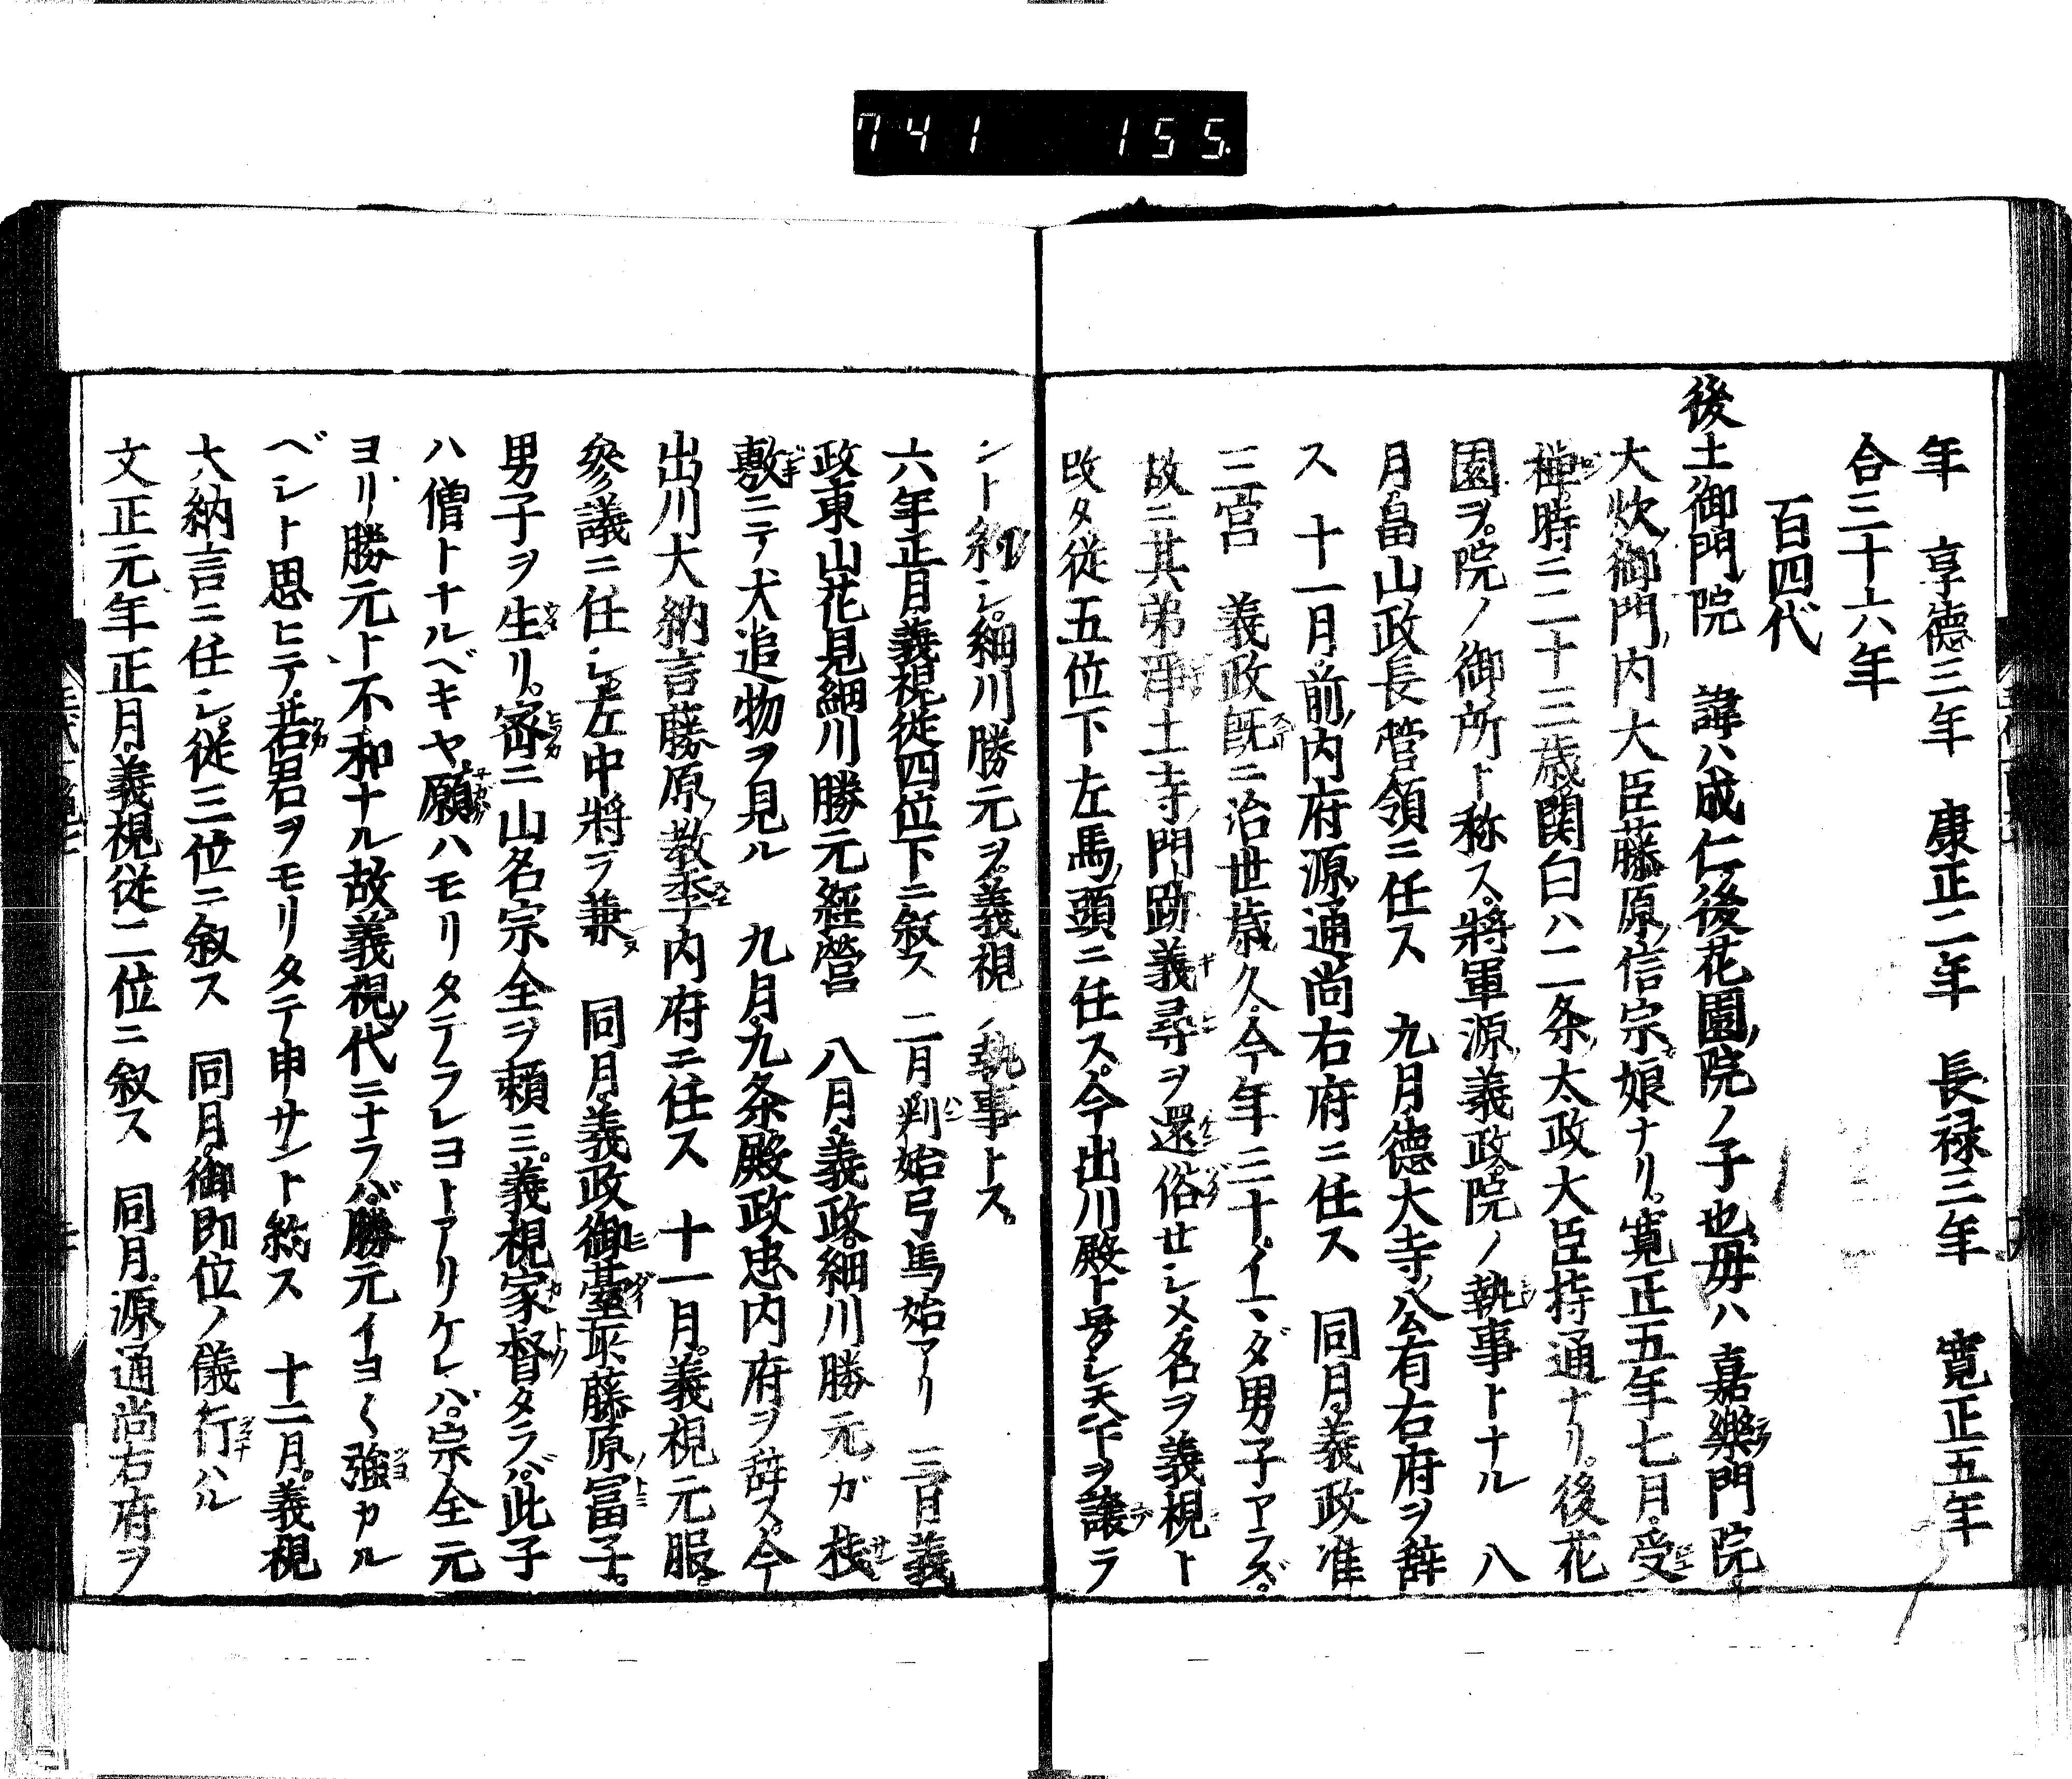 741 155
年 享德三年 康正二年 長禄三年 寛正五年
合三十六年
百四代
後土御門院 諱ハ成仁後花園院ノ子也母ハ嘉樂門院
大炊御門内大臣藤原信宗娘ナリ寛正五年七月受
禅時ニ二十三歳関白ハ二条太政大臣持通ナリ後花
園ヲ院ノ御所ト称ス將軍源義政院ノ執事トナル 八
月畠山政長管領ニ任ス 九月德大寺公有右府ヲ辞
ス 十一月前内府源通尚右府ニ任ス 同月義政准
三宮 義政既ニ治世歳久今年三十イマダ男子アラズ
故ニ其弟浄土寺門跡義尋ヲ還俗せシメ名ヲ義視ト
改タ従五位下左馬頭ニ任ス今出川殿ト号シ天下ヲ譲ラ
ント約シ細川勝元ヲ義視ノ執事トス
六年正月義視従四位下ニ叙ス 二月判始弓馬始アリ 三月義
政東山花見細川勝元經營 八月義政細川勝元ガ桟
敷ニテ犬追物ヲ見ル 九月九条殿政忠内府ヲ辞ス今
出川大納言藤原教季内府ニ任ス 十一月義視元服
參議ニ任シ左中將ヲ兼 同月義政御臺所藤原冨子
男子ヲ生リ密ニ山名宗全ヲ頼ミ義視家督タラバ此子
ハ僧トナルベキヤ願ハモリタテラレヨトアリケレバ宗全元
ヨリ勝元ト不和ナル故義視代ニナラバ勝元イヨ〱強カル
ベシト思ヒテ若君ヲモリタテ申サント約ス 十二月義視
大納言ニ任シ従三位ニ叙ス 同月御即位ノ儀行ハル
文正元年正月義視従二位ニ叙ス 同月源通尚右府ヲ